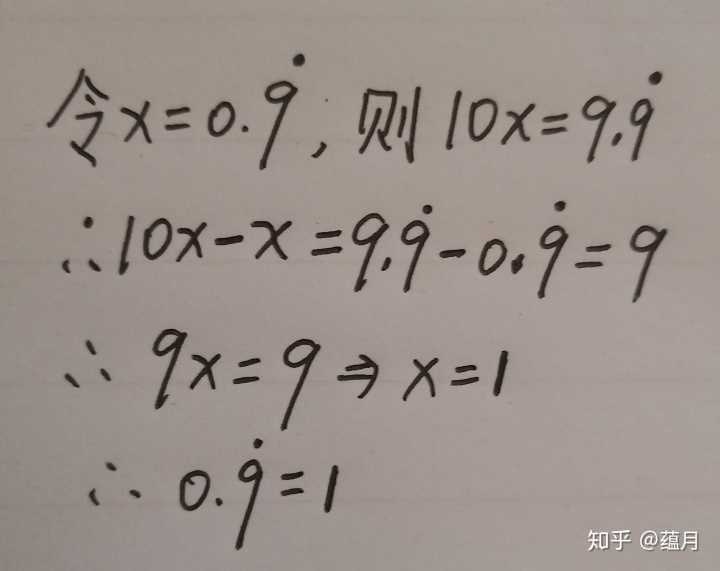 令x=0.9̇, 则10x=9.9̇
∴10x-x=9.9̇-0.9̇=9
∴ 9x=9⇒x=1
∴ 0.9̇=1
知乎 @蕴月